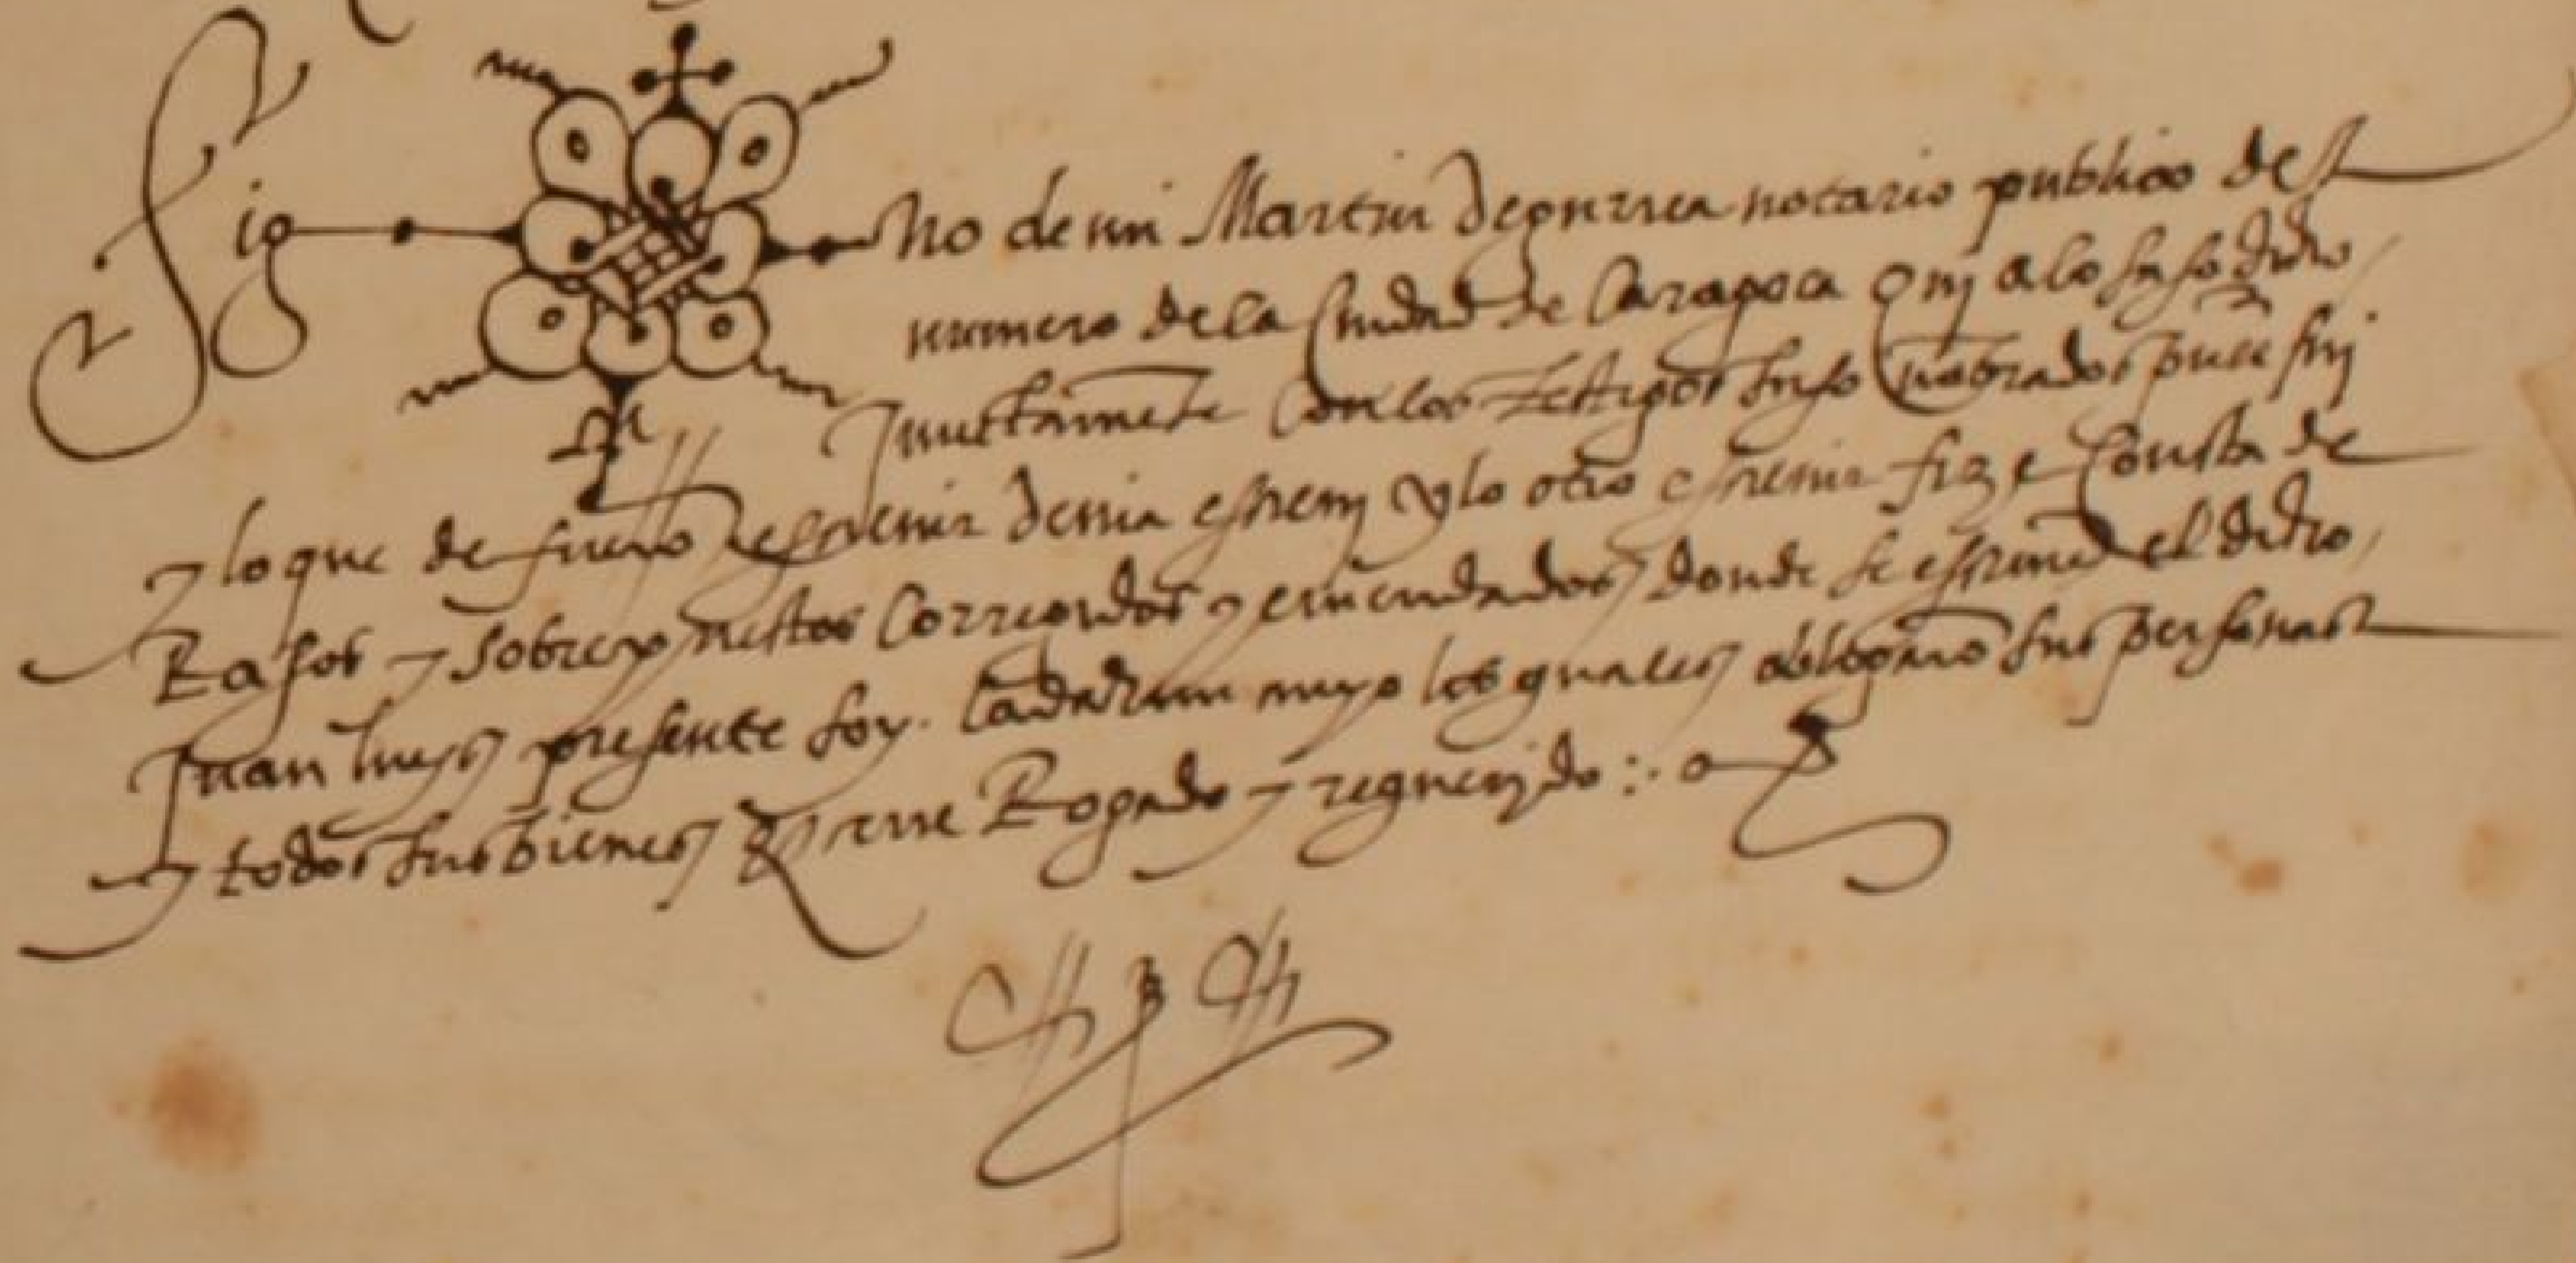 Sig no de mi Martin de gurrea notario publico del
numero de la Ciudad de Caragoça q̃ nj a lo suso dicho
Juntamẽte con los testigos suso nõbrados pñte fuj
y lo que de fuero escreuir deuia escreuj y lo otro escreuir fize Consta de
Rasos y sobrepuestos Corregidos y emendados donde se escriue el dicho
Juan luys presente soy cada vno los quales obligarõ sus personas
y todos sus bienes cerre Rogado y requerido